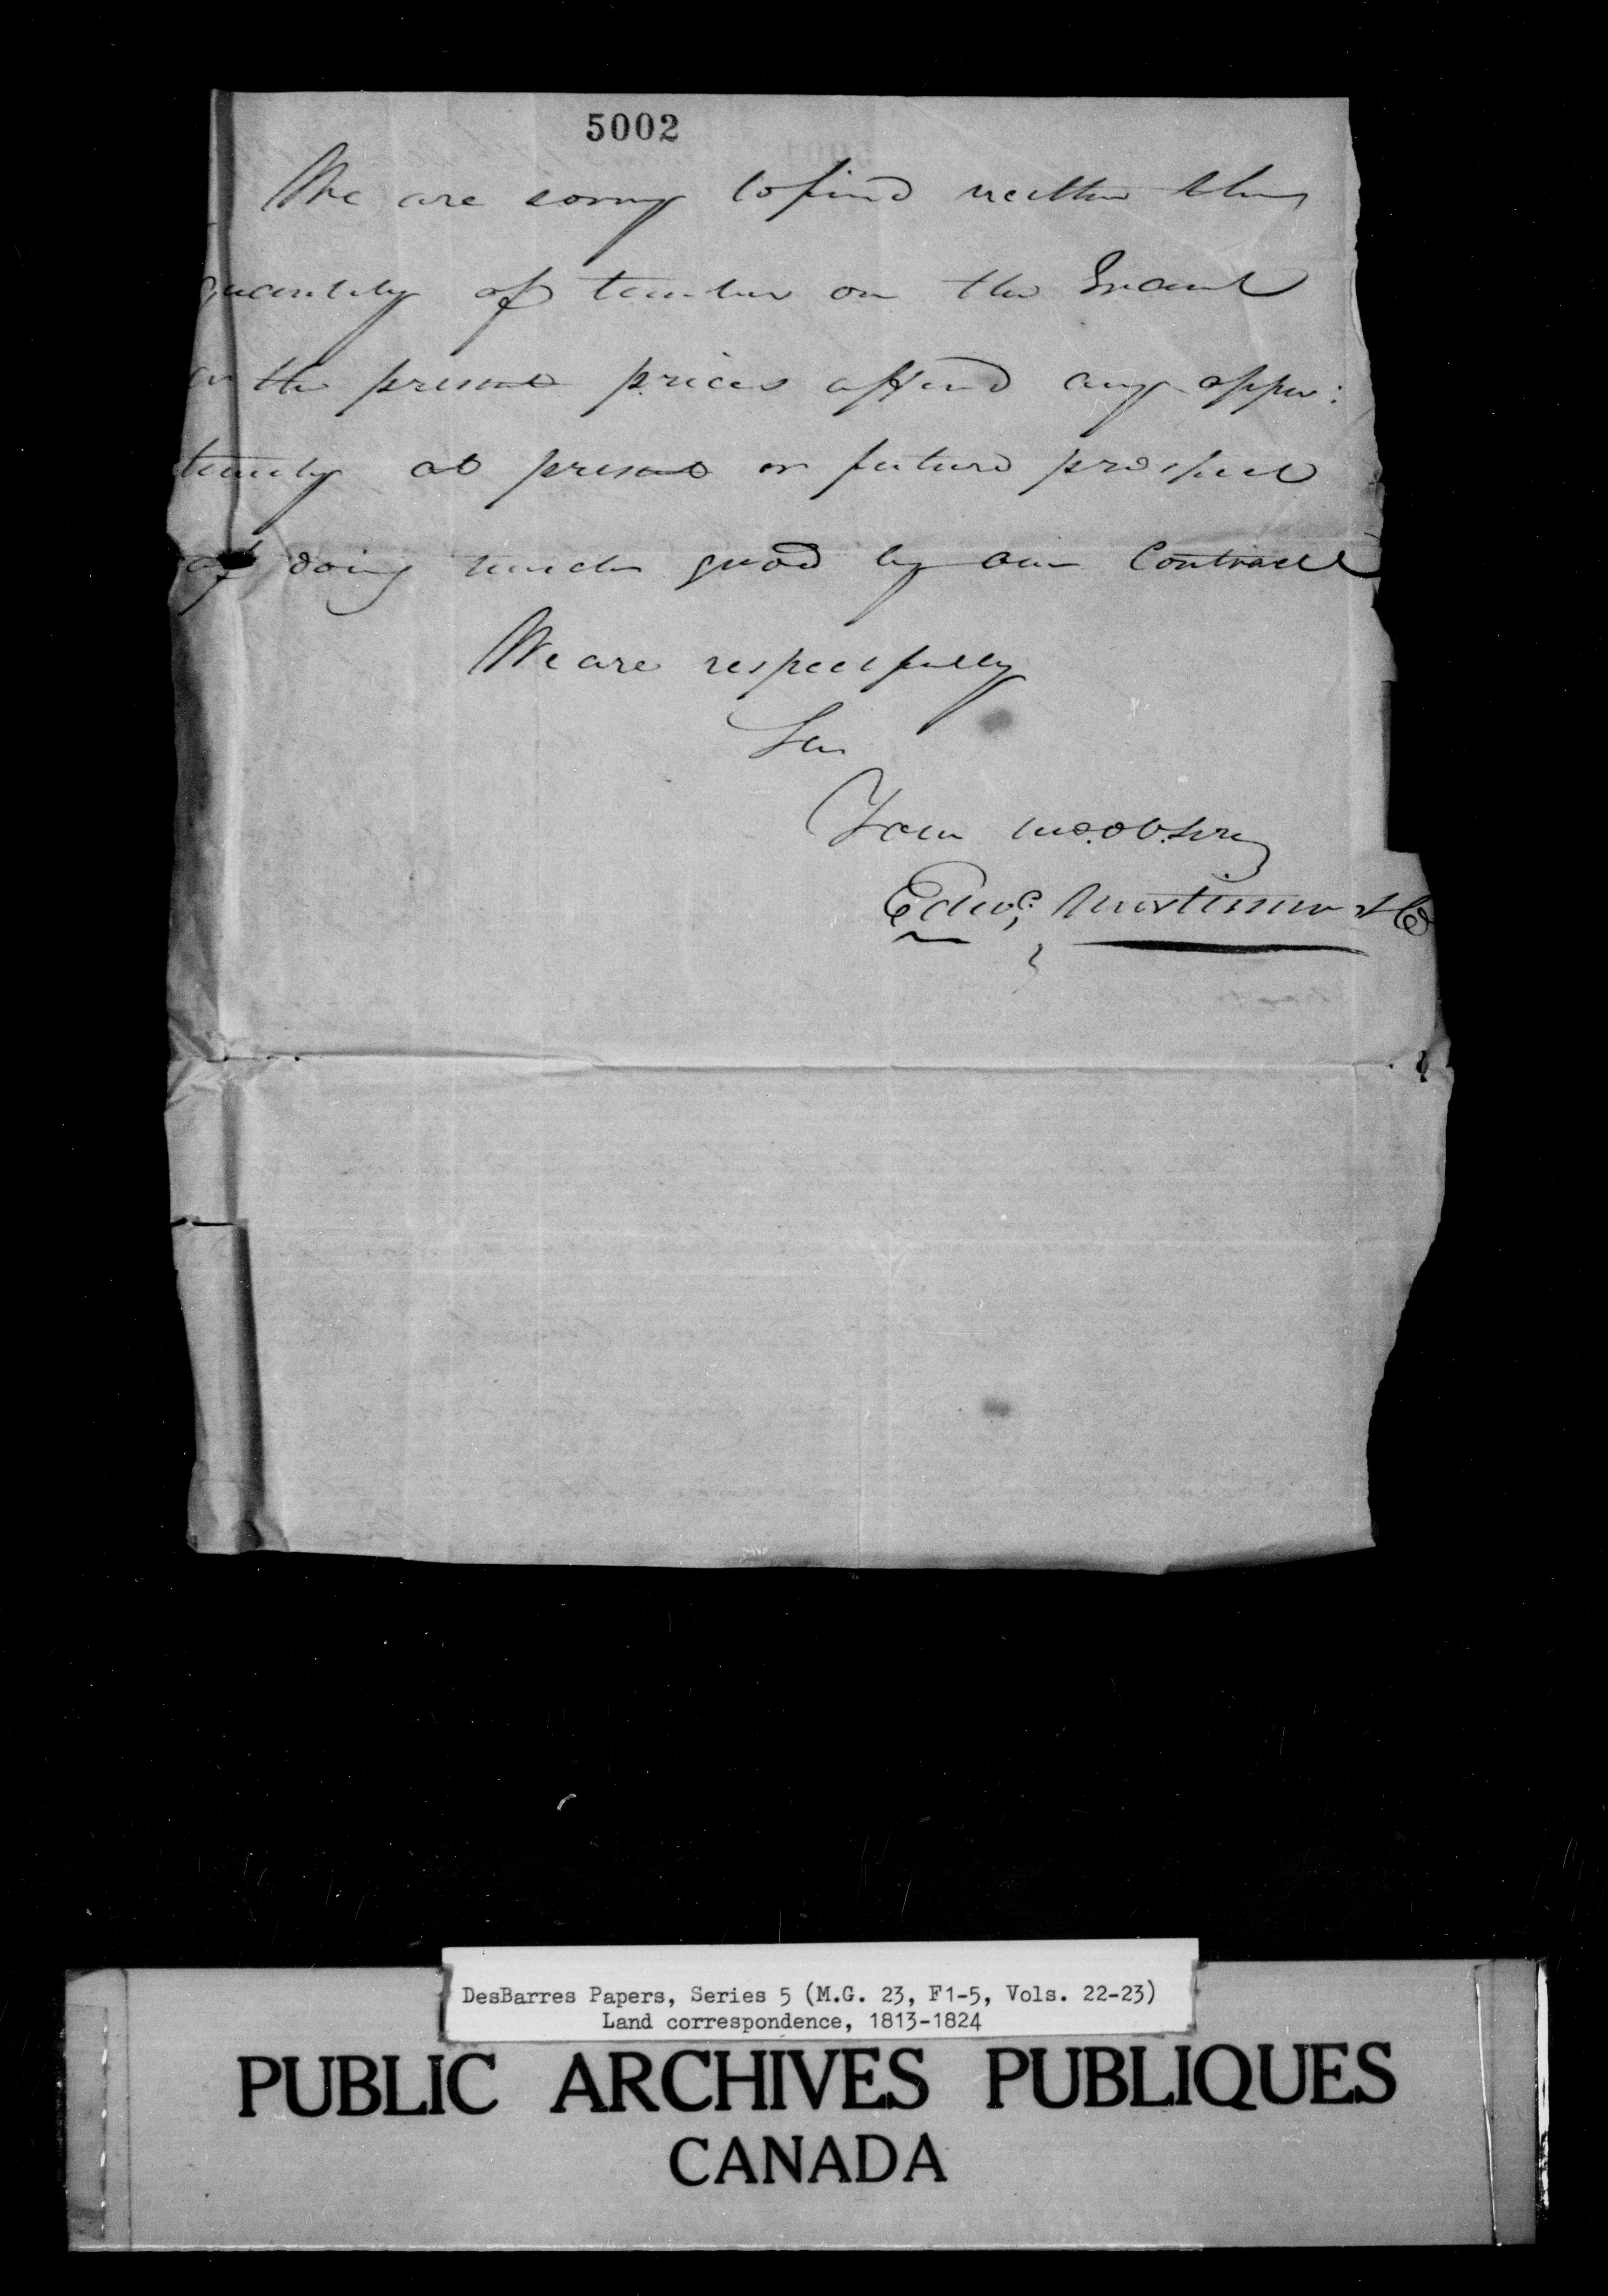 5002
We are sorry to find neither the
quantity of timber on the Grant
or the present prices afford any oppor:
tunity at present or future prospect
of doing much good by our Contract
We are respectfully
Sir
Your mo. ob. Serv
Edwd. Mortimer & Co
DesBarres Papers, Series 5 (M.G. 23, F1-5, Vols. 22-23)
Land correspondence, 1813-1824
PUBLIC ARCHIVES PUBLIQUES
CANADA